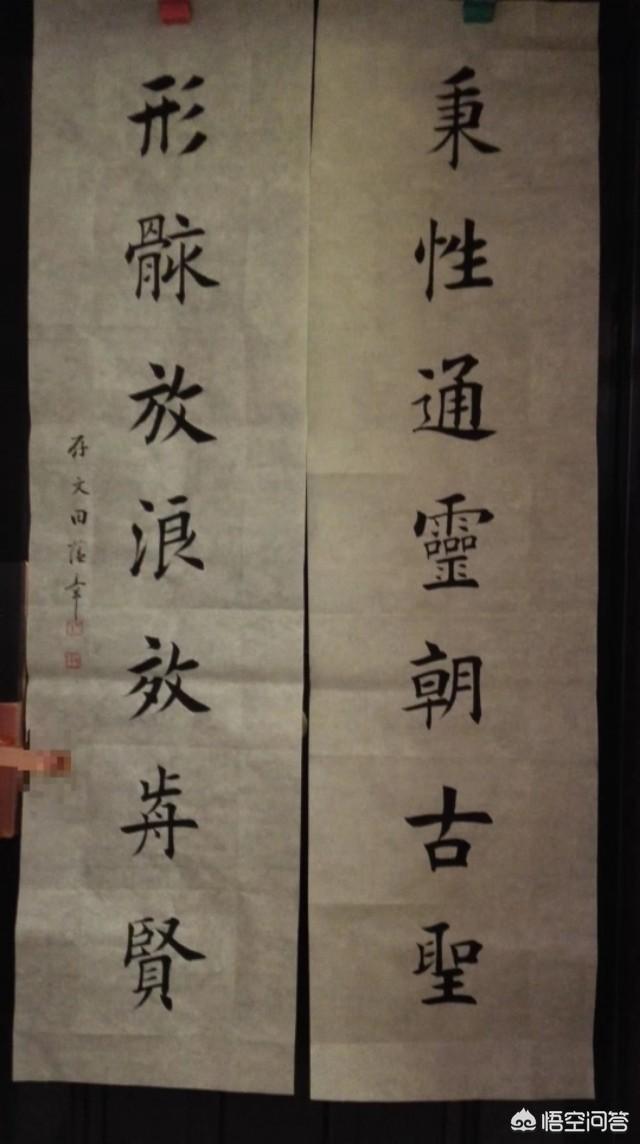 秉性通靈朝古聖
形骸放浪效歬賢
存文田蕴章
悟空问答